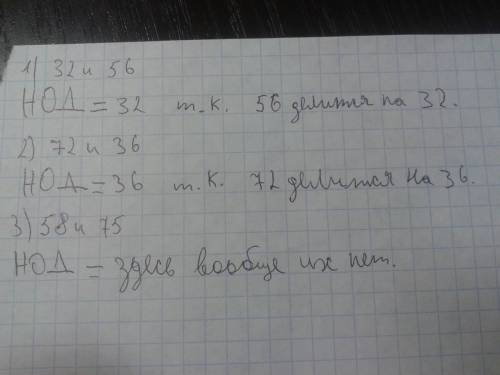 1) 32 и 56
НОД = 32 т.к. 56 делится на 32.
2) 72 и 36
НОД = 36 т.к. 72 делится на 36.
3) 58 и 75
НОД = здесь вообще их нет.